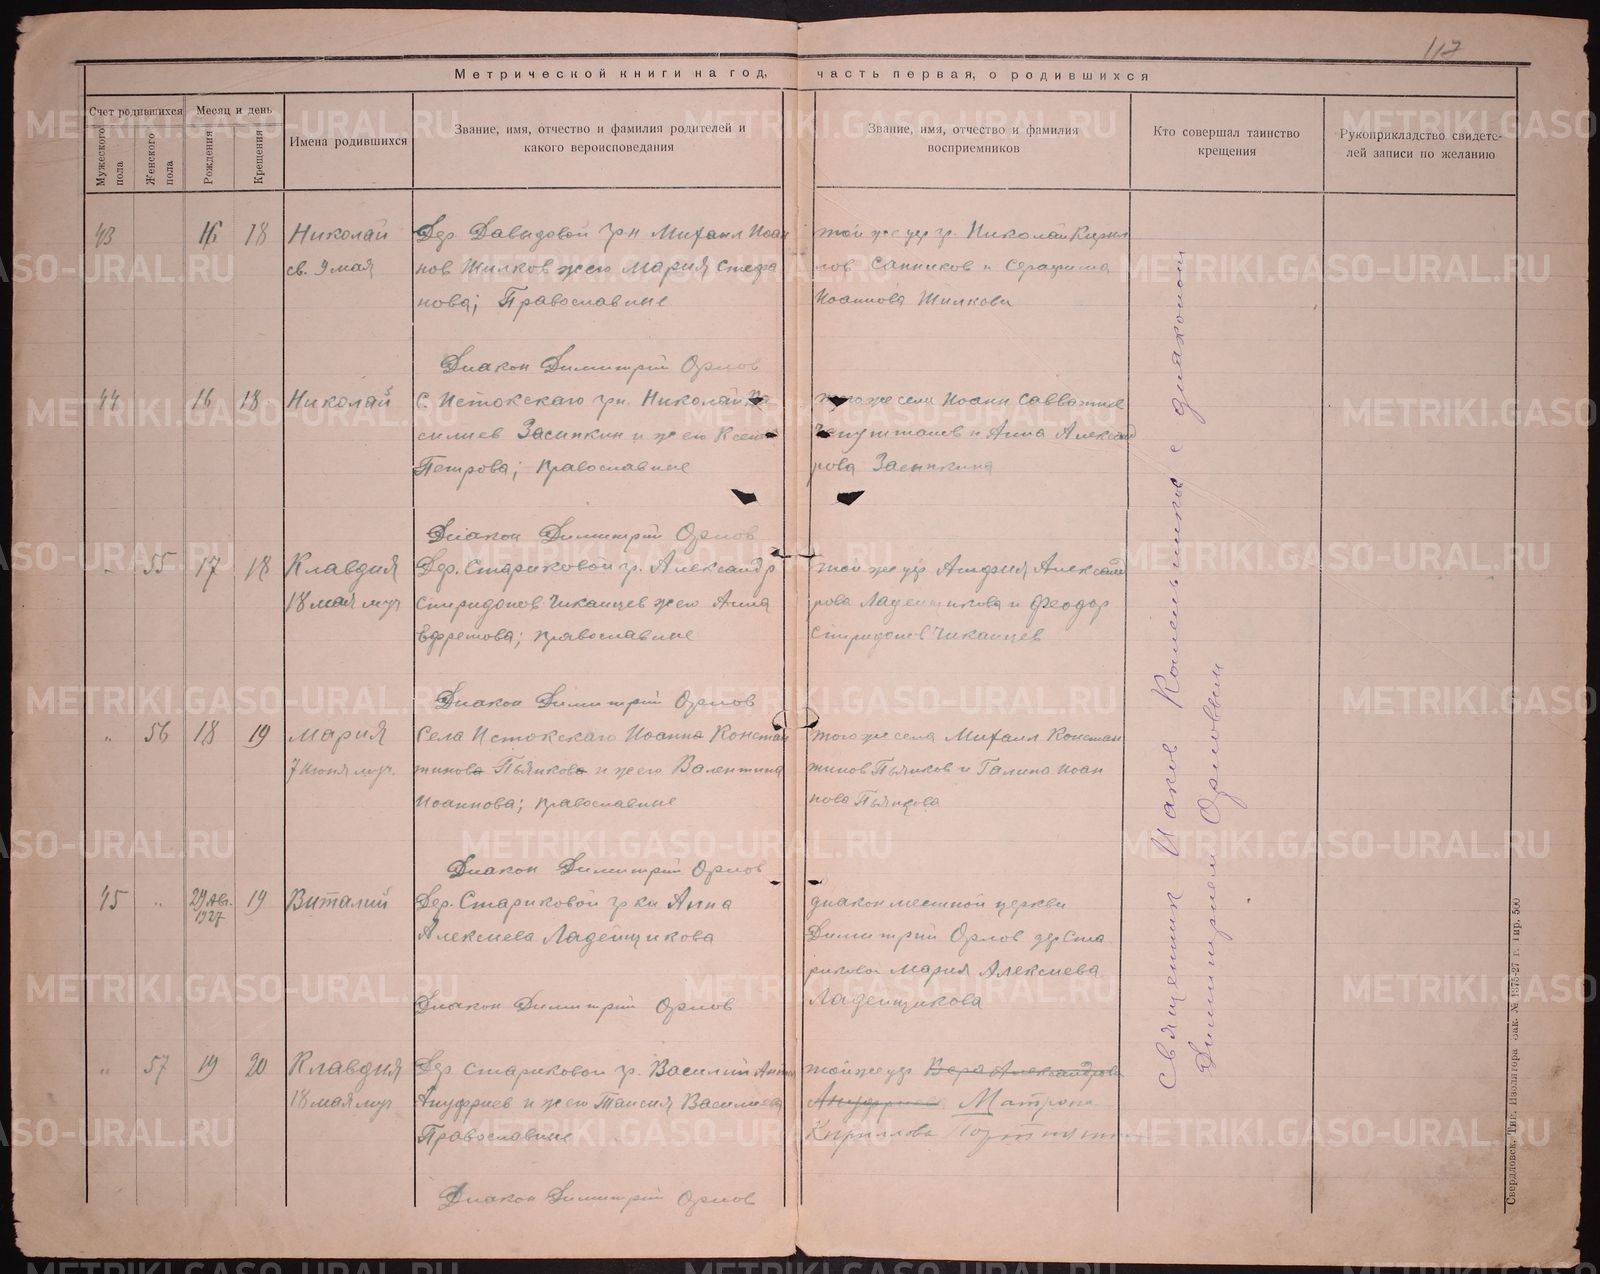 117
Метрической книги на год, часть первая, о родившихся
Счет родившихся
Мужеского пола
Женского пола
Месяц и день
Рождения
Крещения
Имена родившихся
Звание, имя, отчество и фамилия родителей и
какого вероисповедания
Звание, имя, отчество и фамилия
восприемников
Кто совершал таинство
крещения
Рукоприкладство свидете-
лей записи по желанию
43 16 18 Николай
св. 9 мая
Дер. Давыдовой гр-н Михаил Иоан
нов Жилков и жена Мария Стефа
нова; Православные
той же дер гр. Николай Кирил
лов Санников и Серафима
Иоаннова Жилкова
Диакон Димитрий Орлов
44 16 18 Николай
С. Истокскаго грн. Николай Ва
силиев Засыпкин и ж его Ксения
Петрова; православные
того же села Иоанн Савватиев
и Анна Александ
рова Засыпкина
Диакон Димитрий Орлов
" 55 17 18 Клавдия
18 мая муч
Дер. Стариковой гр. Александр
Спиридонов Чиканцев ж его Анна
Ефремова; православные
той же дер Анфия Алексан
рова Ладейщикова и Феодор
Спиридонов Чиканцев
Диакон Димитрий Орлов
" 56 18 19 Мария
7 июня муч.
Села Истокскаго Иоанна Констан
тинова Пьянкова и ж его Валентина
Иоаннова; православные
того же села Михаил Констан
тинов Пьянков и Галина Иоан
нова Пьянкова
Диакон Димитрий Орлов
45 " 29 Авг. 1927 19 Виталий
Дер. Стариковой гр ка Анна
Алексиева Ладейщикова
диакон местной церкви
Димитрий Орлов дер Ста
риковой Мария Алексиева
Ладейщикова
Диакон Димитрий Орлов
" 57 19 20 Клавдия
18 мая муч
Дер Стариковой гр. Василий
Ануфриев и ж его Таисия Василиева
Православные
той же дер Вера Александрова
Ануфриева Матрона
Кириллова
Диакон Димитрий Орлов
Священник Иаков Колесников с диаконом
Димитрием Орловым
Свердловск. Тип. Изолятора Зак. № 1375-27 г. Тир. 500
METRIKI.GASO-URAL.RU